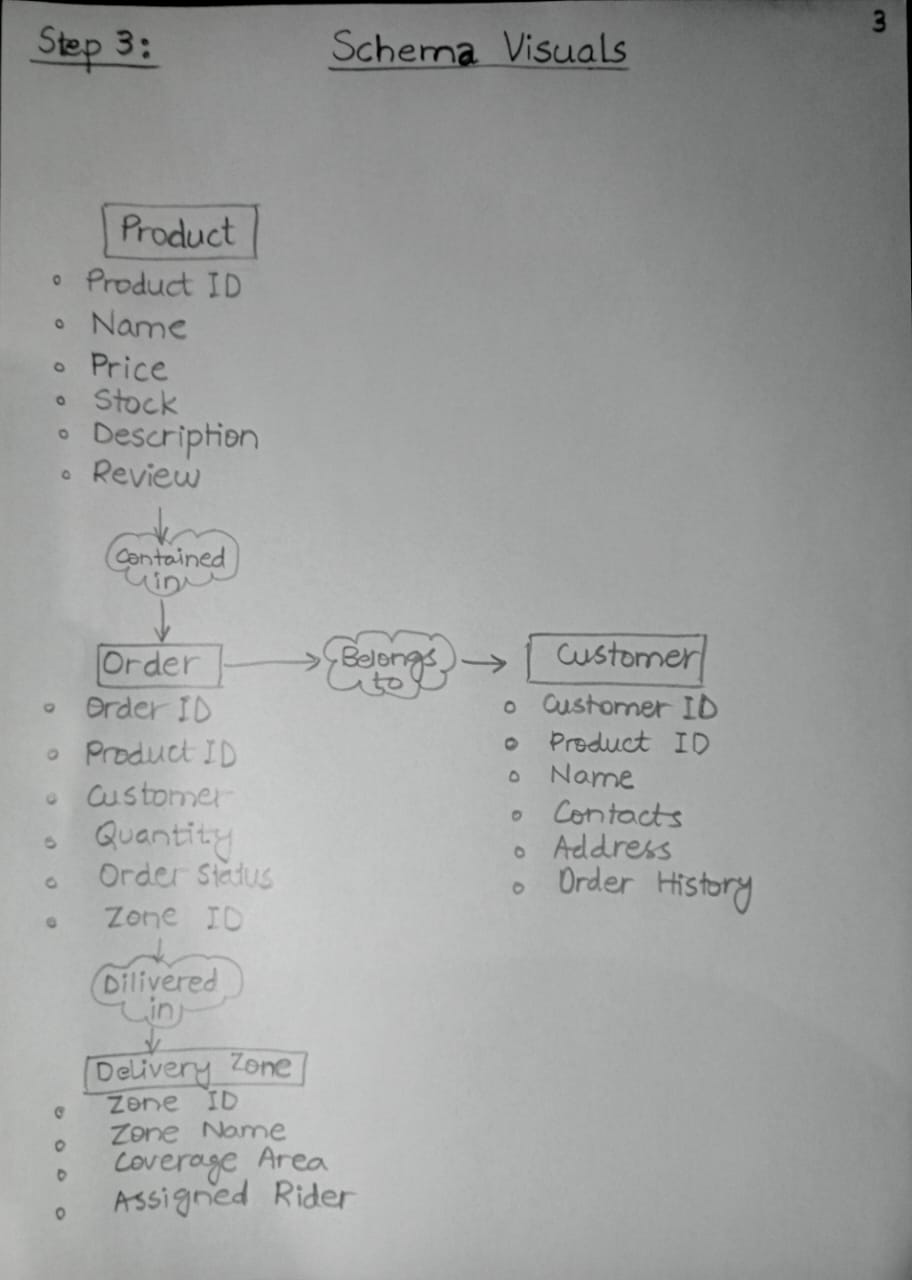 3
Step 3: Schema Visuals
Product
Product ID
Name
Price
Stock
Description
Review
Contained
in
Order
Belongs
to
Customer
Order ID
Product ID
Customer
Quantity
Order Status
Zone ID
Customer ID
Product ID
Name
Contacts
Address
Order History
Dilivered
in
Delivery Zone
Zone ID
Zone Name
Coverage Area
Assigned Rider